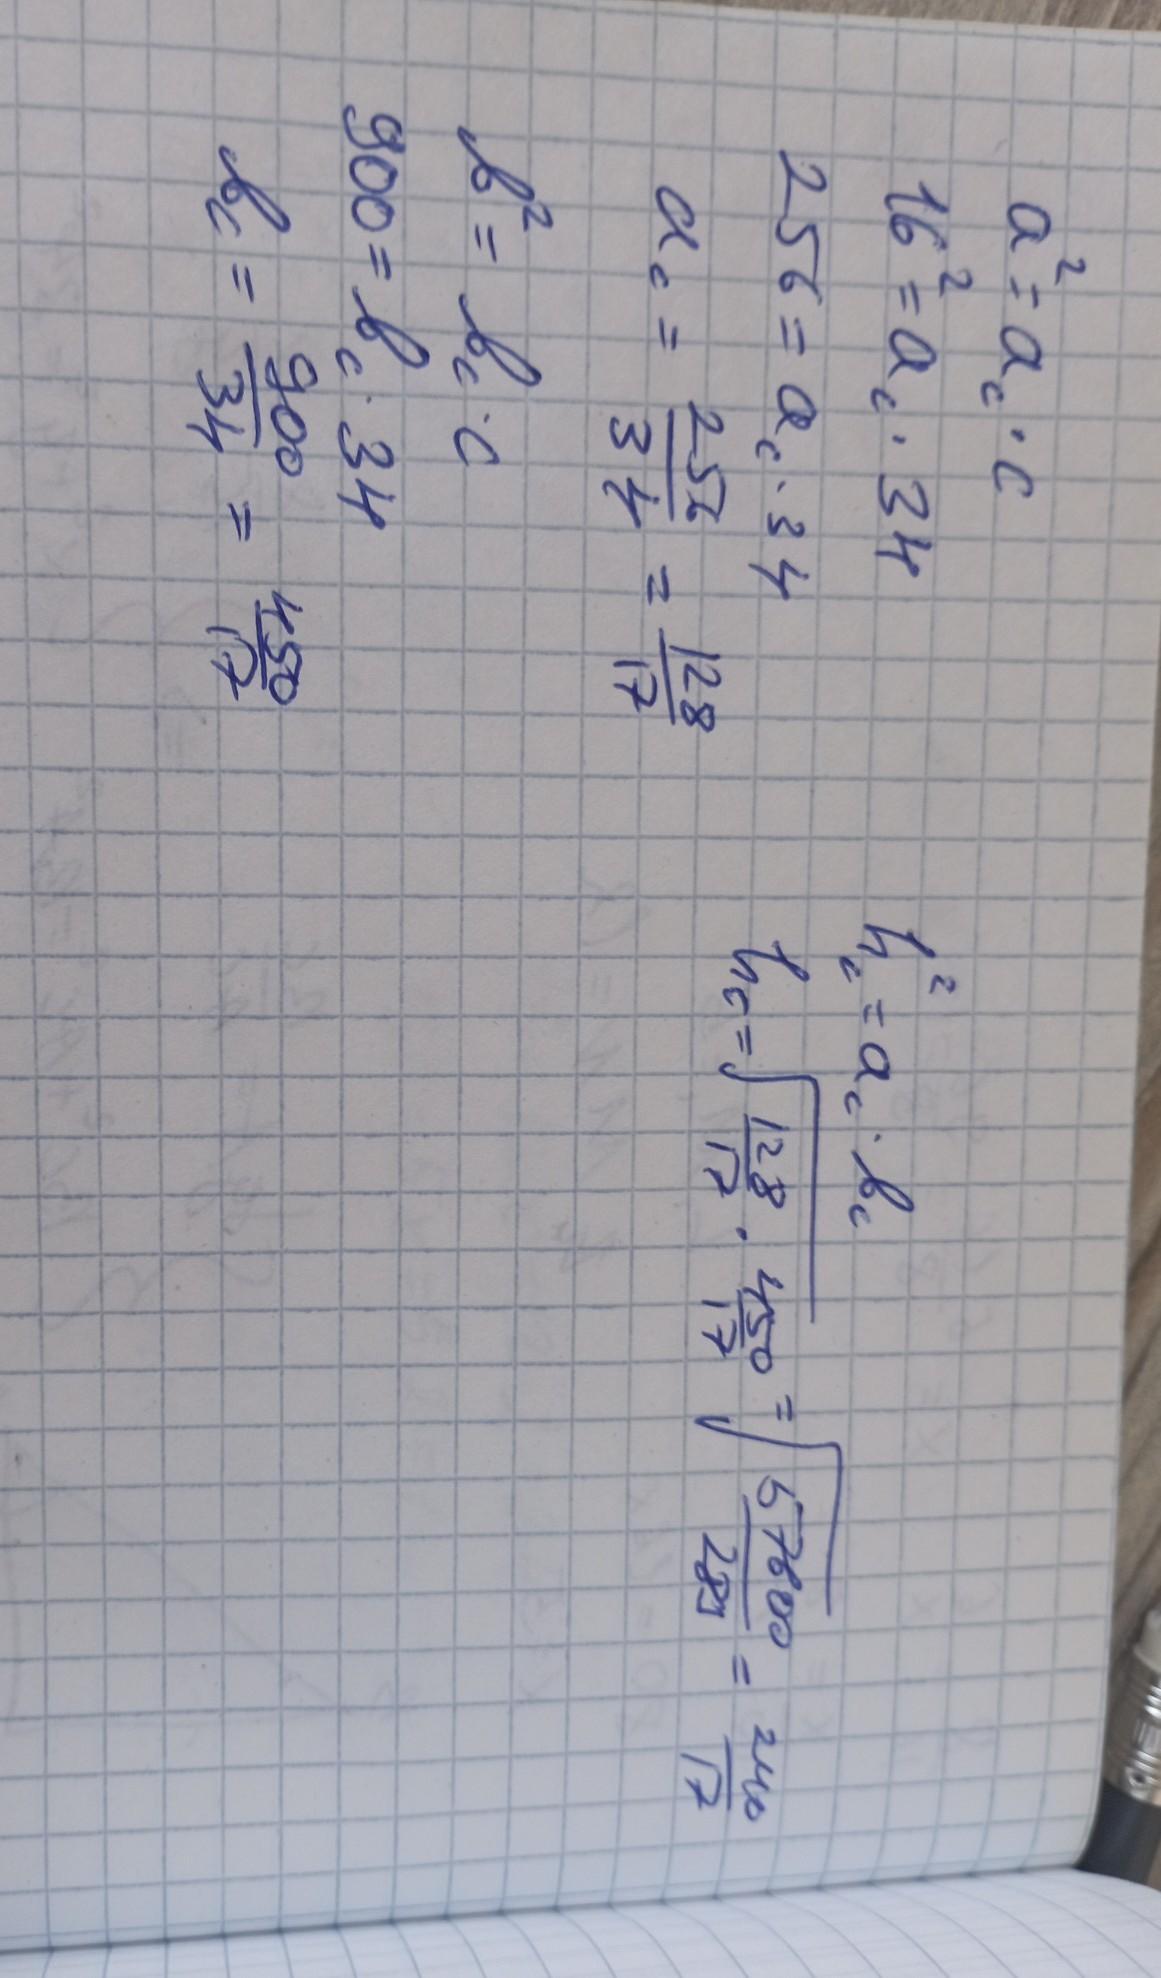 a² = a_c · c
16² = a_c · 34
256 = a_c · 34
a_c = 256/34 = 128/17
b² = b_c · c
900 = b_c · 34
b_c = 900/34 = 450/17
h_c² = a_c · b_c
h_c = √(128/17 · 450/17) = √(57600/289) = 240/17